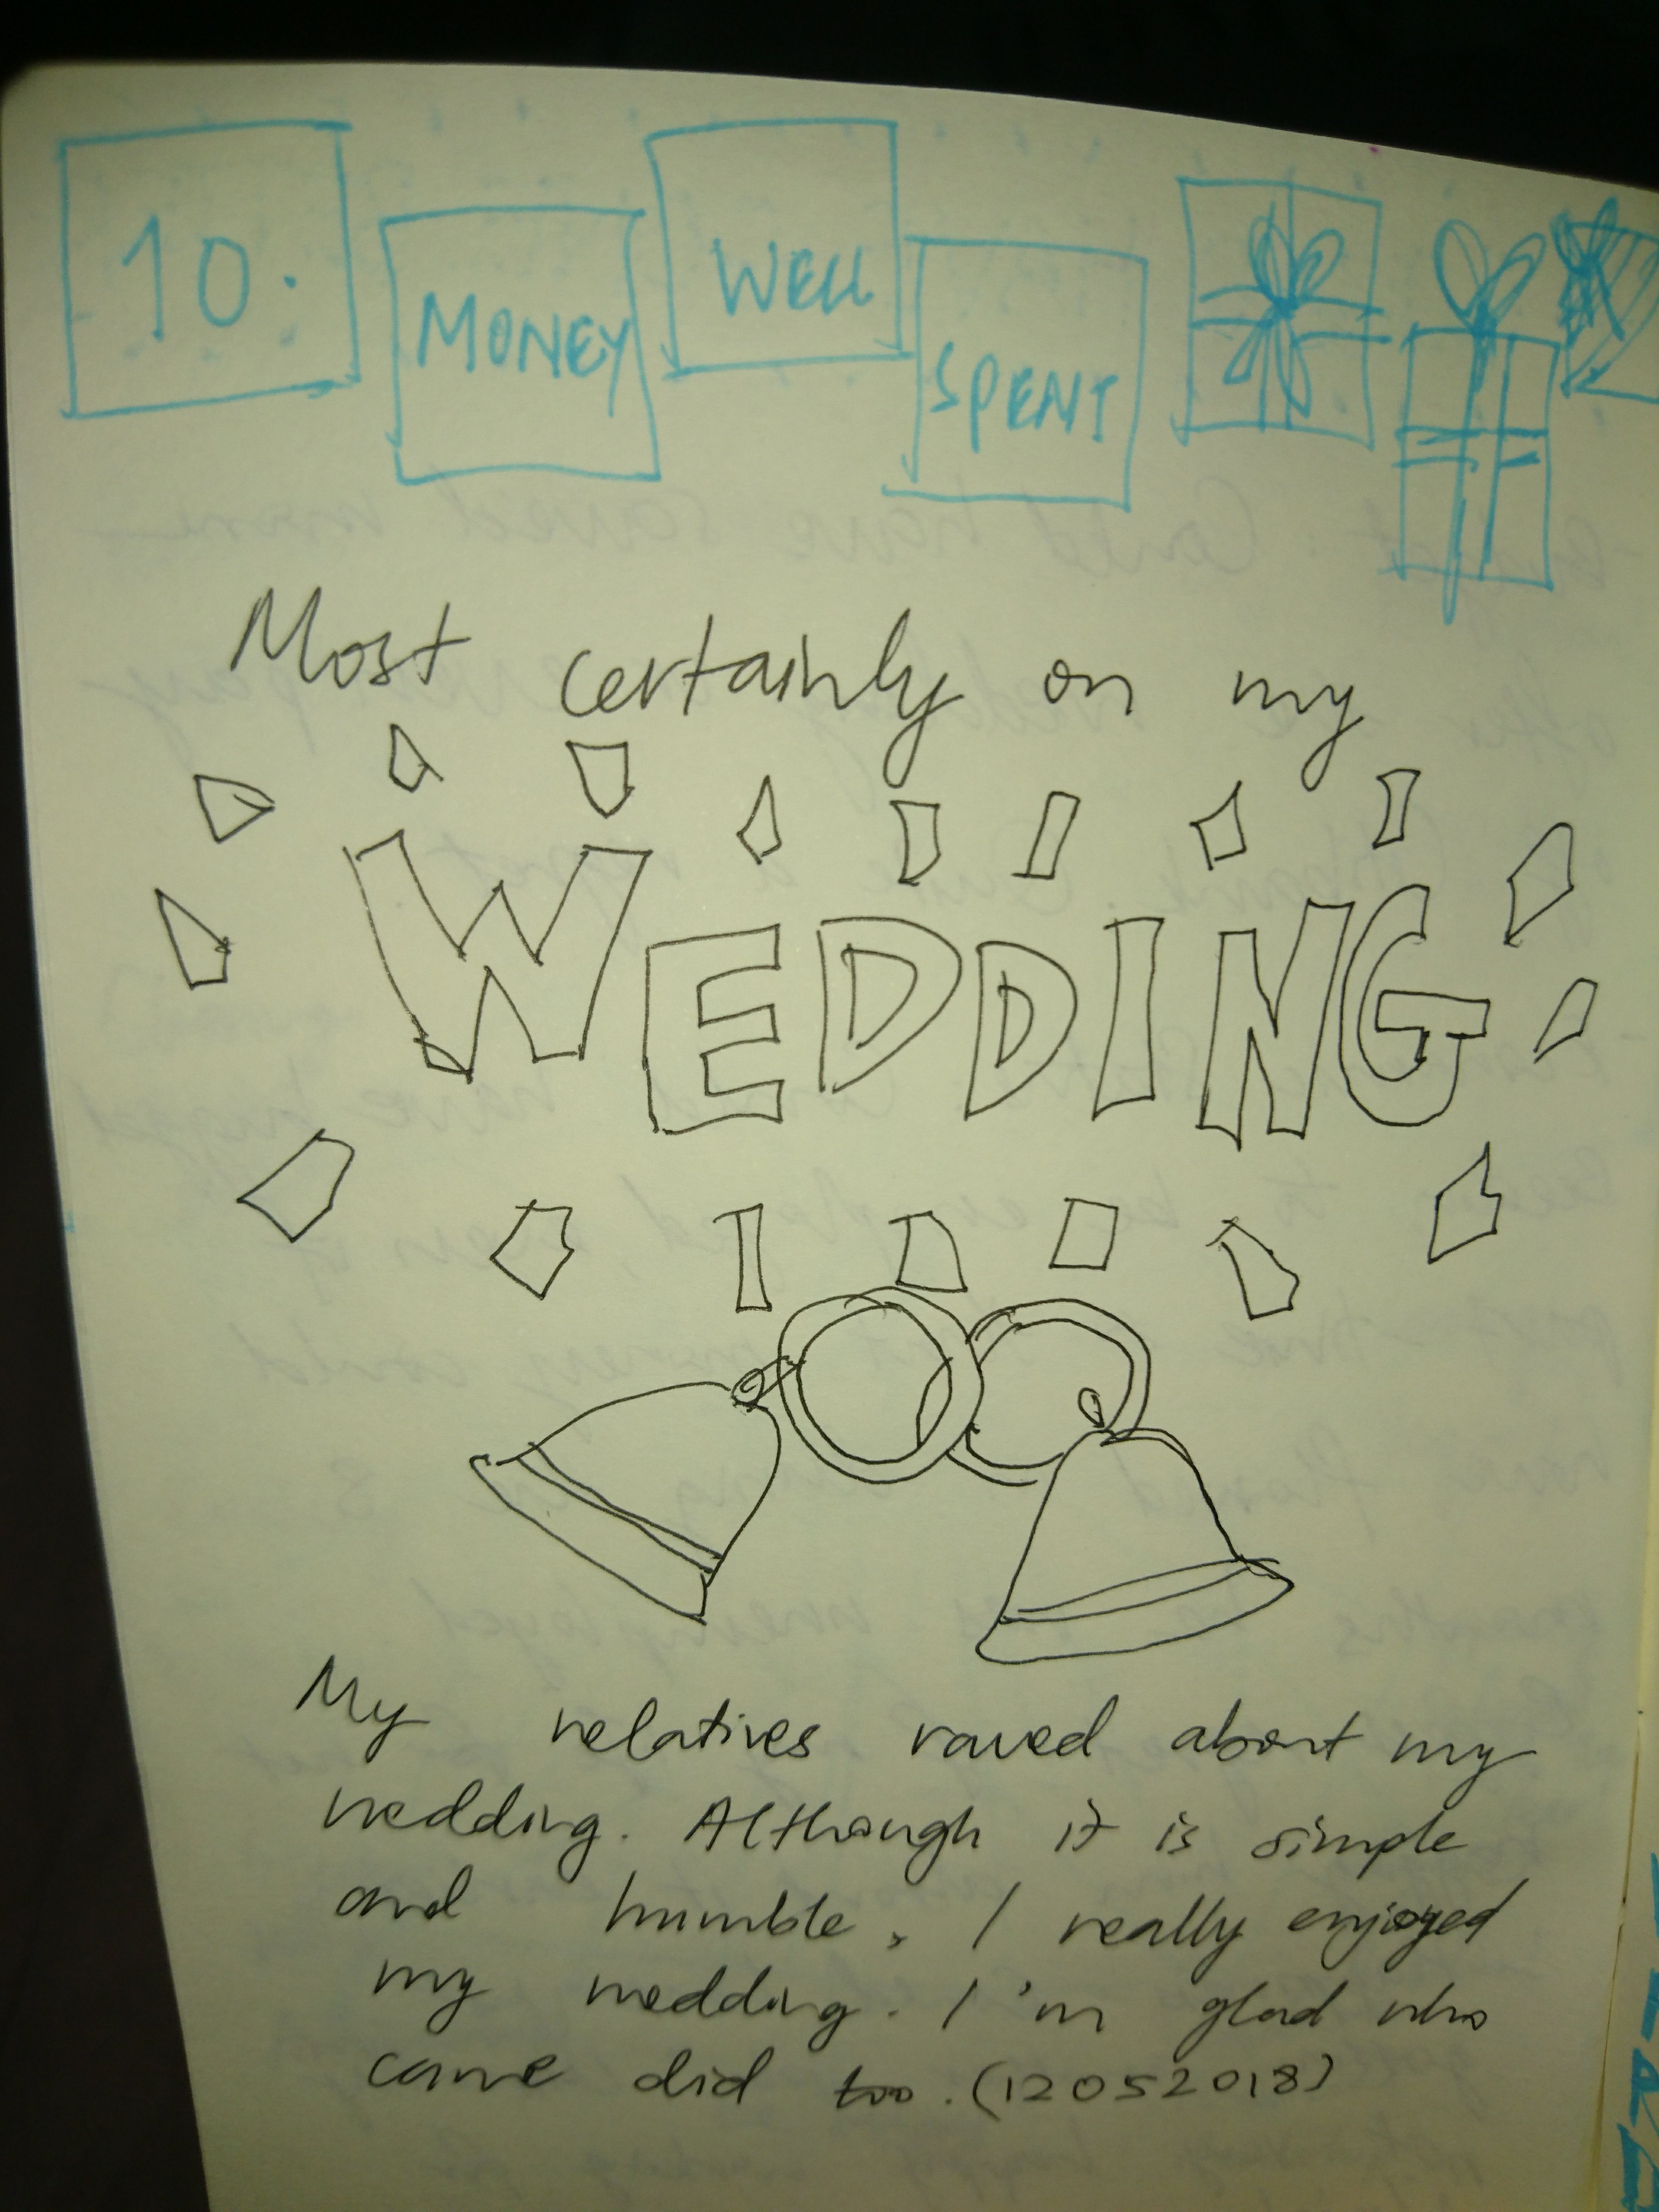 10. MONEY WELL SPENT
Most certainly on my
WEDDING
My relatives raved about my
wedding. Although it is simple
and humble, I really enjoyed
my wedding. I'm glad who
came did too. (12052018)